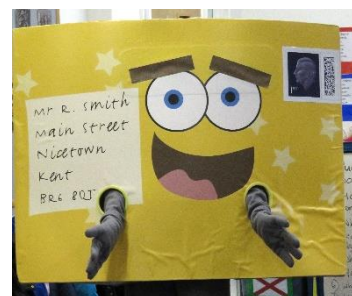 Mr R. Smith
Main Street
Nicetown
Kent
BR6 8QT